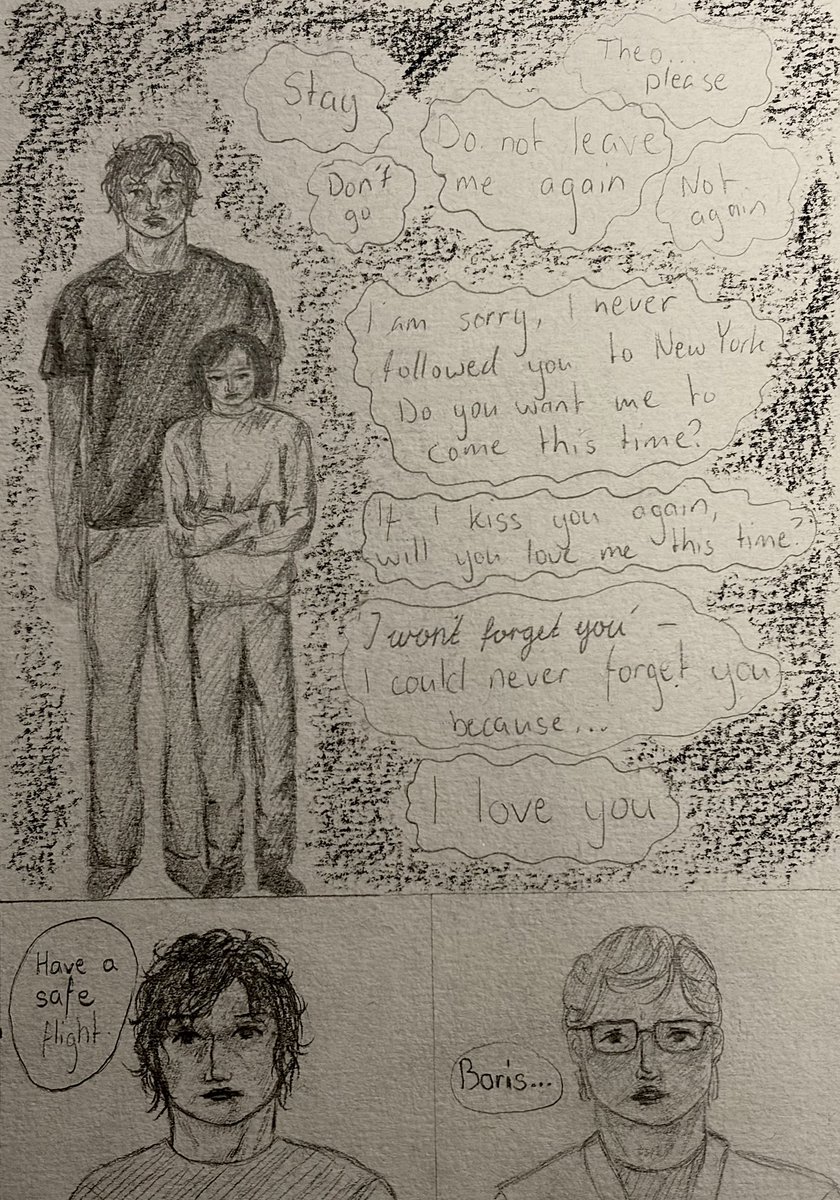 Stay
Theo...
please
Do not leave
me again
Don't
go
Not
again
I am sorry, I never
followed you to New York
Do you want me to
come this time?
If I kiss you again,
will you love me this time?
'I won't forget you' –
I could never forget you
because...
I love you
Have a
safe
flight.
Boris...